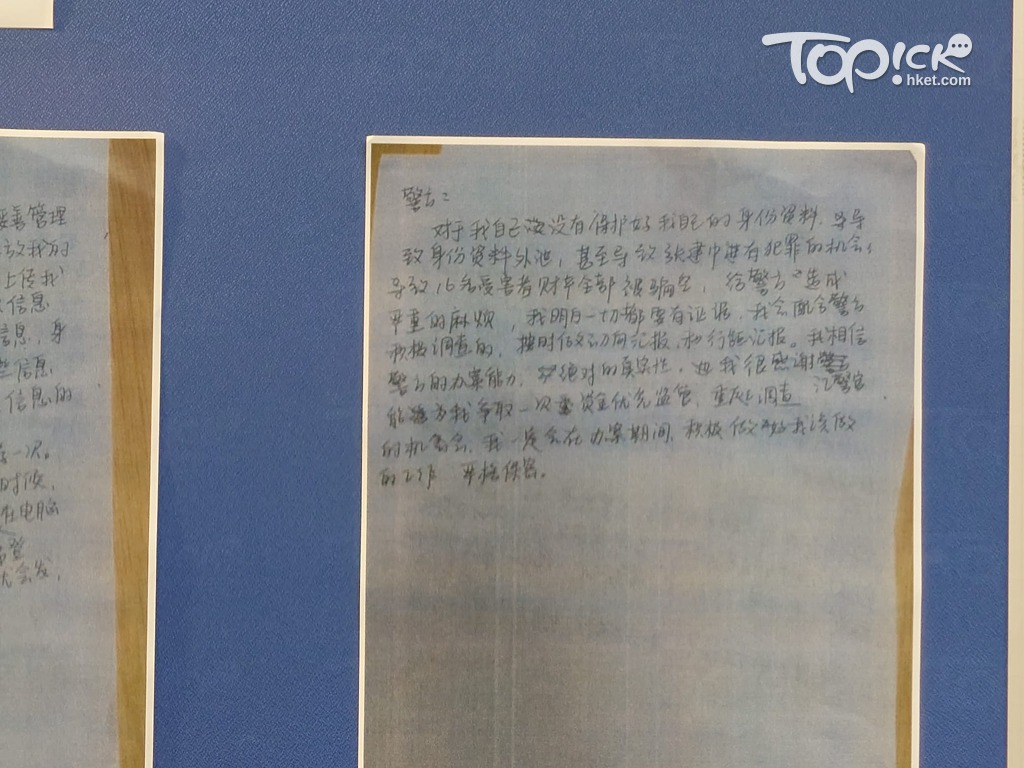 TOPICK
hket.com
善管理
致我的
上传我
信息
信息,身
些信息
信息的
一次。
时候,
在电脑
会发,
警方:
对于我自己没有保护好我自己的身份资料,导
致身份资料外泄,甚至导致张建中进有犯罪的机会,
导致16名受害者财产全部被骗空,给警方造成
严重的麻烦,我明白一切都要有证据,我会配合警方
积极调查的,按时做公向汇报,和行踪汇报。我相信
警方的办案能力,绝对的真实性,也我很感谢警官
能为我争取一次资金优先监管,调查
的机会,我一定会在办案期间,积极做好我该做
的工作 严格保密。